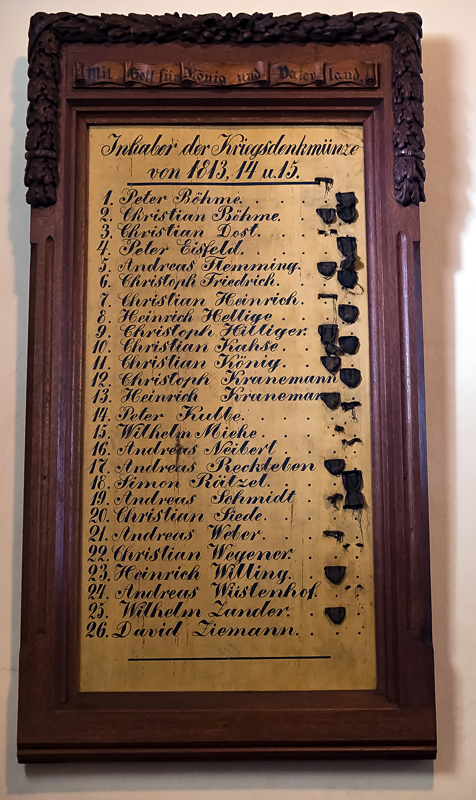 Mit Gott für König und Vaterland.
Inhaber der Kriegsdenkmünze
von 1813, 14 u. 15.
1. Peter Böhme.
2. Christian Böhme.
3. Christian Dost.
4. Peter Eisfeld.
5. Andreas Flemming.
6. Christoph Friedrich.
7. Christian Heinrich.
8. Heinrich Hellige
9. Christoph Hilliger.
10. Christian Kahse.
11. Christian König.
12. Christoph Kranemann
13. Heinrich Kranemann
14. Peter Kulbe.
15. Wilhelm Miehe.
16. Andreas Neibert
17. Andreas Reckleben
18. Simon Rätzel.
19. Andreas Schmidt
20. Christian Siede.
21. Andreas Weber.
22. Christian Wegener.
23. Heinrich Willing.
24. Andreas Wüstenhof.
25. Wilhelm Zander.
26. David Ziemann.